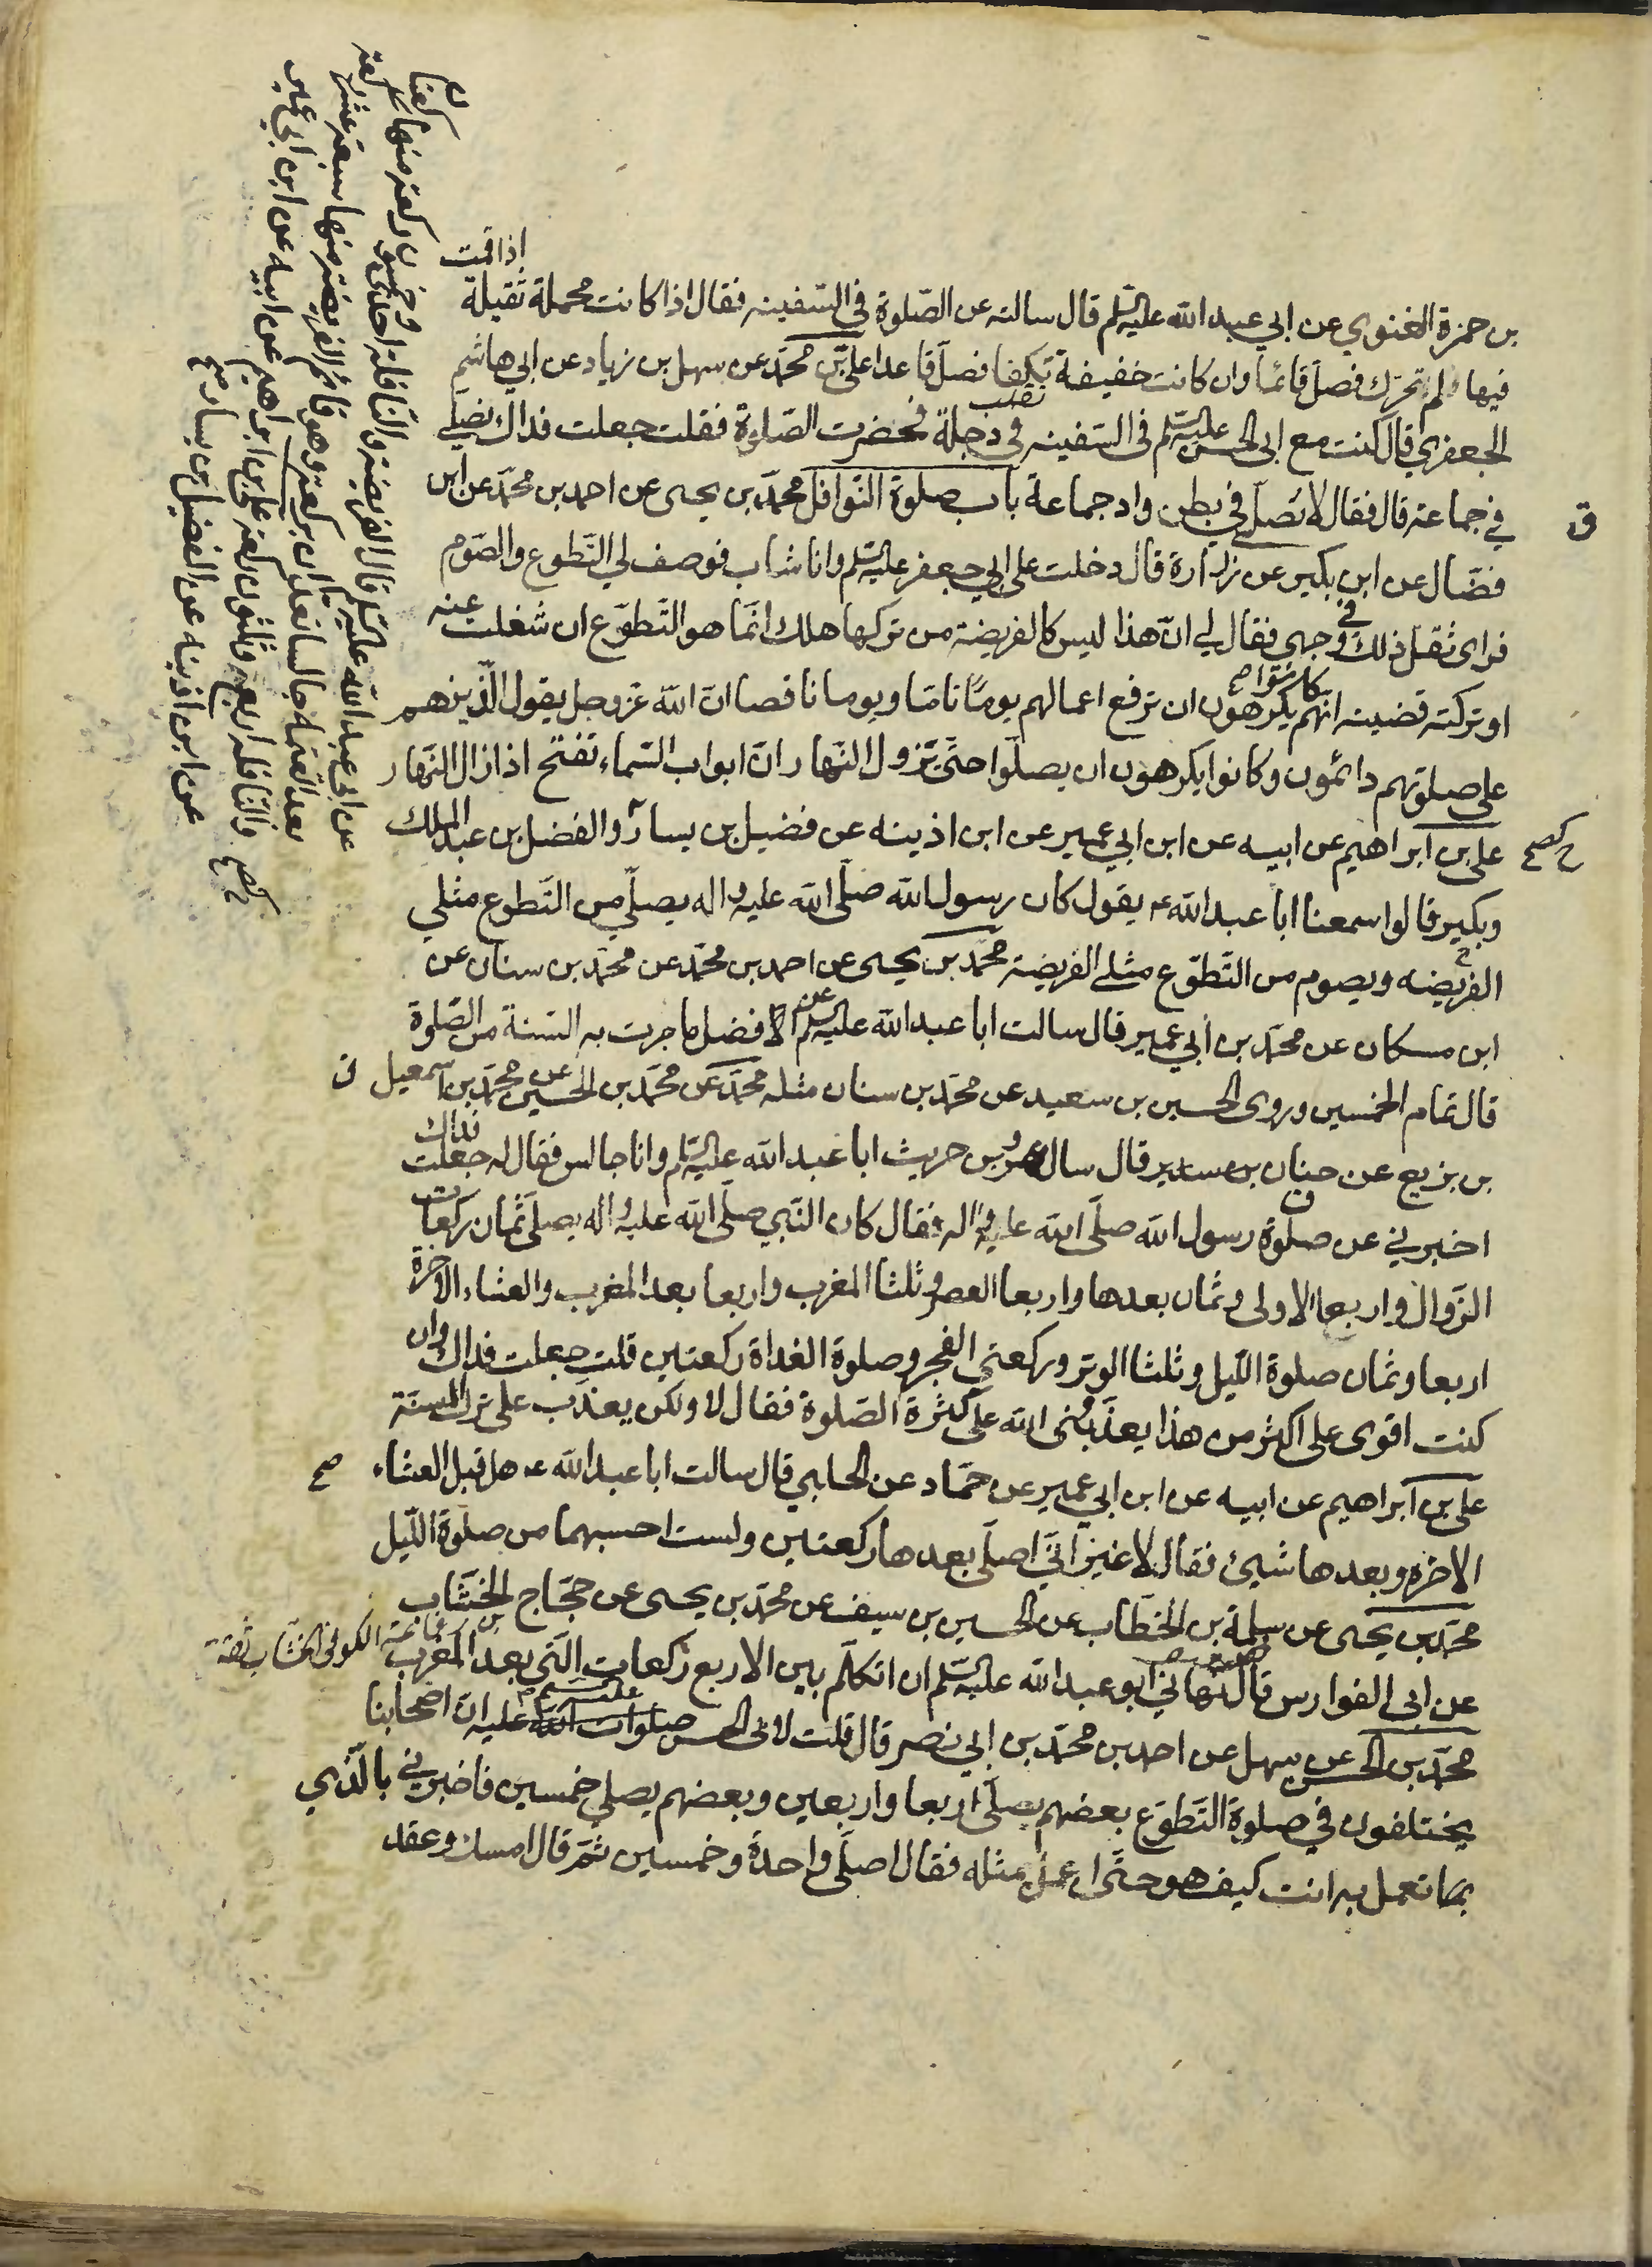 اذا قمت
بن حمزة الغنوي عن ابي عبد الله عليه السلم قال سالته عن الصّلوة في السّفينه فقال اذا كانت محملة ثقيلة
فيها لم تحرّك فصلّ قائمًا وان كانت خفيفة تكفا فصلّ قاعدا علي بن محمّد عن سهل بن زياد عن ابي هاشم
الجعفري قال كنت مع ابي الحسن عليه السلم في السّفينه في دجلة فحضرت الصّلوة فقلت جعلت فداك نصلّي
في جماعة قال فقال لا تصلّي في بطن واد جماعة باب صلوة النّوافل محمّد بن يحيى عن احمد بن محمّد عن ابن
فضّال عن ابن بكير عن زرارة قال دخلت على ابي جعفر عليه السلم وانا شاب فوصف لي التّطوع والصّوم
فراى ثقل ذلك في وجهي فقال لي انّ هذا ليس كالفريضة من تركها هلك انّما هو التّطوّع ان شغلت عنه
او تركته قضيته انّهم كانوا يكرهون ان ترفع اعمالهم يومًا تاما ويوما ناقصا انّ الله عزوجل يقول الّذين هم
على صلوتهم دائمون وكانوا يكرهون ان يصلّوا حتّى تزول النّهار انّ ابواب السّماء تفتح اذا زال النّهار
علي بن ابراهيم عن ابيه عن ابن ابي عمير عن ابن اذينه عن فضيل بن يسار والفضل بن عبد الملك
وبكير قالوا سمعنا ابا عبد الله ع يقول كان رسول الله صلّى الله عليه واله يصلّي من التّطوع مثلي
الفريضه ويصوم من التّطوّع مثلي الفريضة محمّد بن يحيى عن احمد بن محمّد عن محمّد بن سنان عن
ابن مسكان عن محمّد بن ابي عمير قال سالت ابا عبد الله عليه السلم عن الافضل ما جرت به السّنة من الصّلوة
قال تمام الخمسين وروى الحسين بن سعيد عن محمّد بن سنان مثله محمّد عن محمّد بن الحسين عن محمّد بن اسمعيل
بن بزيع عن حنان بن سدير قال سال عمرو بن حريث ابا عبد الله عليه السلم وانا جالس فقال له جعلت فداك
اخبرني عن صلوة رسول الله صلّى الله عليه واله فقال كان النّبي صلّى الله عليه واله يصلّي ثمان ركعات
الزّوال واربعا الاولى وثمان بعدها واربعا العصر وثلثا المغرب واربعا بعد المغرب والعشاء الاخرة
اربعا وثمان صلوة اللّيل وثلثا الوتر وركعتي الفجر وصلوة الغداة ركعتين قلت جعلت فداك وان
كنت اقوى على اكثر من هذا يعذّبني الله على كثرة الصّلوة فقال لا ولكن يعذّب على ترك السنّة
علي بن ابراهيم عن ابيه عن ابن ابي عمير عن حمّاد عن الحلبي قال سالت ابا عبد الله ع هل قبل العشاء
الاخره وبعدها شيئ فقال لا غير انّي اصلّي بعدها ركعتين ولست احسبهما من صلوة اللّيل
محمّد بن يحيى عن سلمة بن الخطّاب عن الحسين بن سيف عن محمّد بن يحيى عن حجّاج الخشّاب
عن ابي الفوارس قال نهاني ابو عبد الله عليه السلم ان اتكلّم بين الاربع ركعات الّتي بعد المغرب
محمّد بن الحسن عن سهل عن احمد بن محمّد بن ابي نصر قال قلت لابي الحسن صلوات الله عليه انّ اصحابنا
يختلفون في صلوة التّطوّع بعضهم يصلّي اربعا واربعين وبعضهم يصلي خمسين فاخبرني بالّذي
بما تعمل به انت كيف هو حتّى اعمل مثله فقال اصلّي واحدة وخمسين ثمّ قال امسك وعقد
ق
صح
الكوفي الخشاب ثقة
عن ابي عبد الله عليه السلم قال الفريضة والنّافلة احدى وخمسون ركعة منها ركعتان
بعد العتمة جالسا تعدان بركعة وهو قائم الفريضة منها سبعة عشر ركعة
والنّافلة اربع وثلثون ركعة علي بن ابراهيم عن ابيه عن ابن ابي عمير
عن ابن اذينه عن الفضيل بن يسار صح